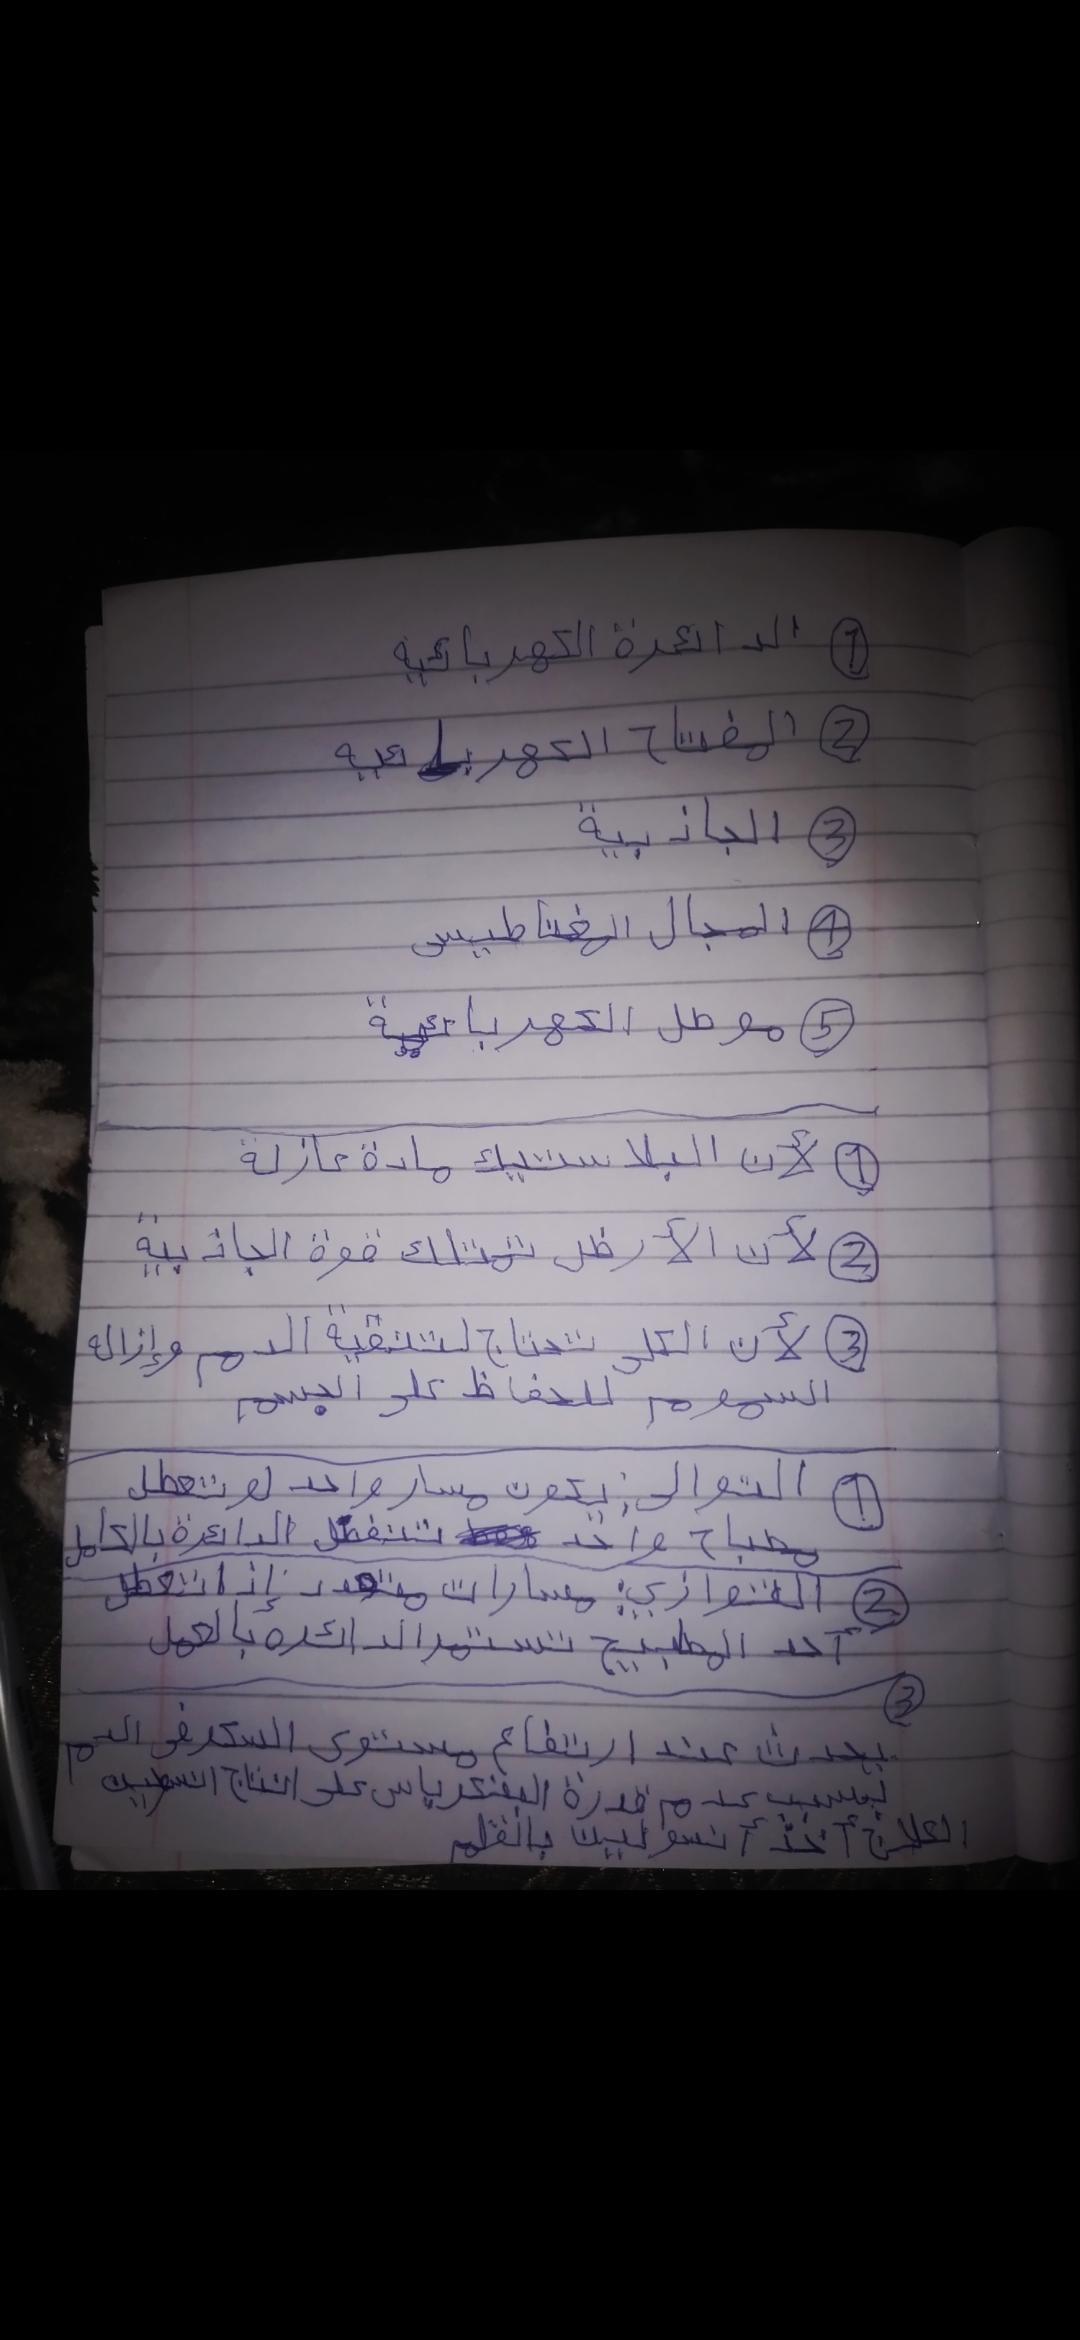 ① الدائرة الكهربائيه
② المفتاح الكهربائيه
③ الجاذبية
④ المجال المغناطيس
⑤ موصل الكهربائية
① لأن البلاستيك مادة عازلة
② لأن الأرض تمتلك قوة الجاذبية
③ لأن الكلى تحتاج لتنقية الدم وإزاله
السموم للحفاظ على الجسم
① التوالى: يكون مسار واحد لو تعطل
مصباح واحد تنفصل الدائرة بالكامل
② التوازي: مسارات متعدد إذا تعطل
أحد المصابيح تستمر الدائره بالعمل
③
يحدث عند ارتفاع مستوى السكر فى الدم
بسبب عدم قدرة البنكرياس على انتاج
العلاج أخذ أنسولين بالقلم